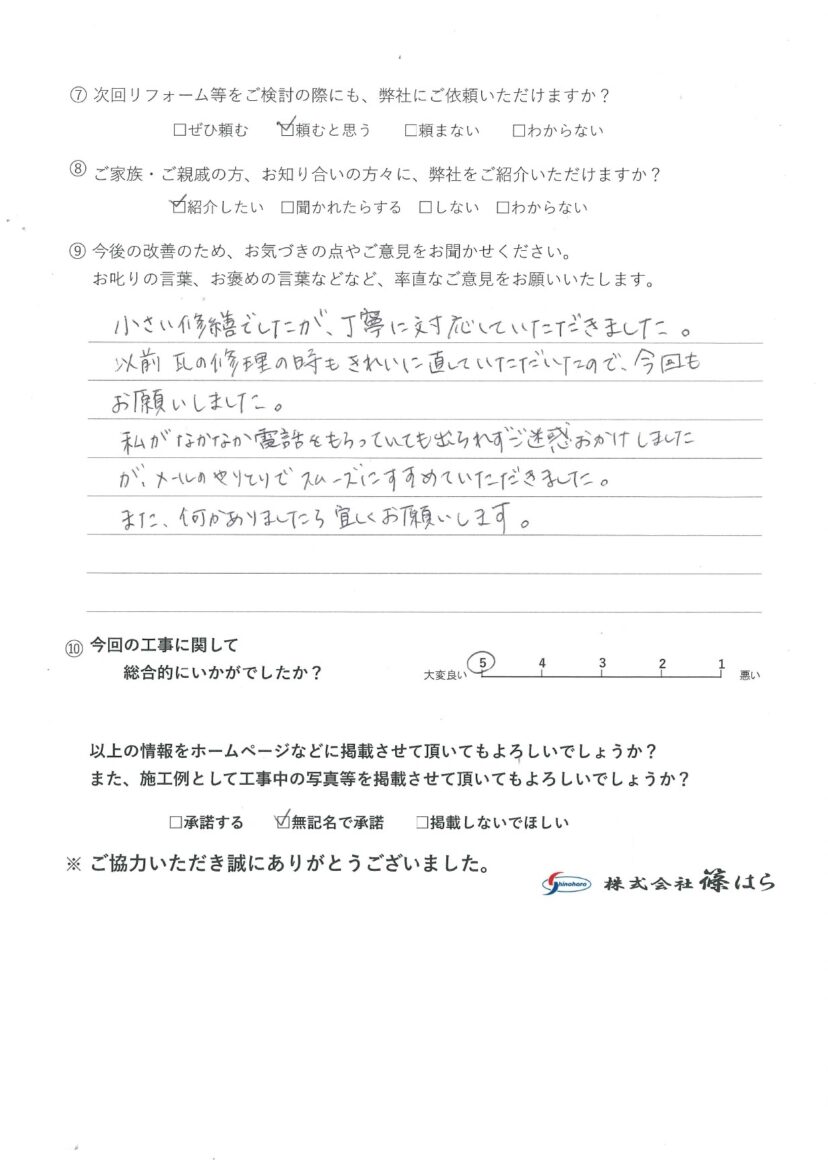 ⑦ 次回リフォーム等をご検討の際にも、弊社にご依頼いただけますか？
□ぜひ頼む ☑頼むと思う □頼まない □わからない
⑧ ご家族・ご親戚の方、お知り合いの方々に、弊社をご紹介いただけますか？
☑紹介したい □聞かれたらする □しない □わからない
⑨ 今後の改善のため、お気づきの点やご意見をお聞かせください。
お叱りの言葉、お褒めの言葉などなど、率直なご意見をお願いいたします。
小さい修繕でしたが、丁寧に対応していただきました。
以前 瓦の修理の時もきれいに直していただいたので、今回も
お願いしました。
私がなかなか電話をもらっていても出られずご迷惑おかけしました
が、メールのやりとりでスムーズにすすめていただきました。
また、何かありましたら宜しくお願いします。
⑩ 今回の工事に関して
総合的にいかがでしたか？
大変良い 5 4 3 2 1 悪い
以上の情報をホームページなどに掲載させて頂いてもよろしいでしょうか？
また、施工例として工事中の写真等を掲載させて頂いてもよろしいでしょうか？
□承諾する ☑無記名で承諾 □掲載しないでほしい
※ ご協力いただき誠にありがとうございました。
Shinohara 株式会社 篠はら